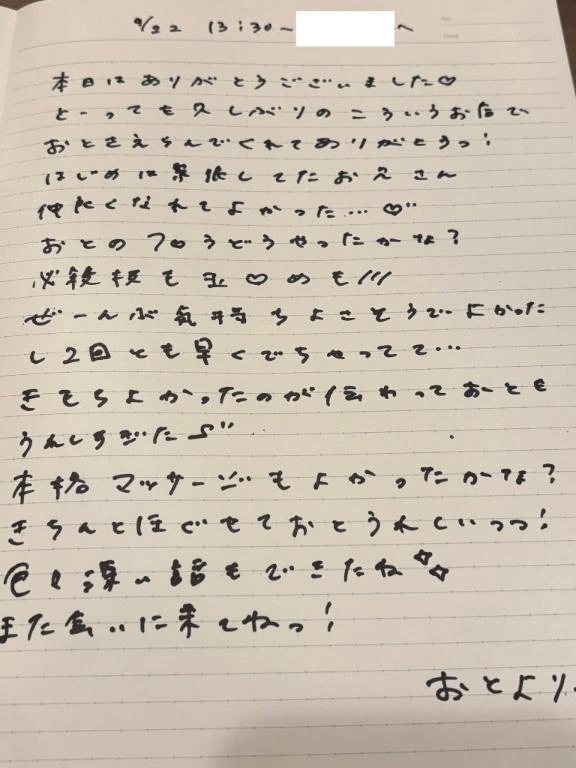 9/22 13:30〜 へ
本日はありがとうございました♡
とーっても久しぶりのこういうお店で
おとさえらんでくれてありがとうっ!
はじめは緊張してたお兄さん
仲良くなれてよかった...♡
おとのフロうどうやったかな?
必殺技も玉♡めも///
ぜーんぶ気持ちよさそうでよかった
し2回とも早くでちゃってて...
きもちよかったのが伝わっておとも
うれしすぎた
本格マッサージもよかったかな?
きちんとほぐせておとうれしいっっ!
色々深い話もできたね
また会いに来てねっ!
おとより